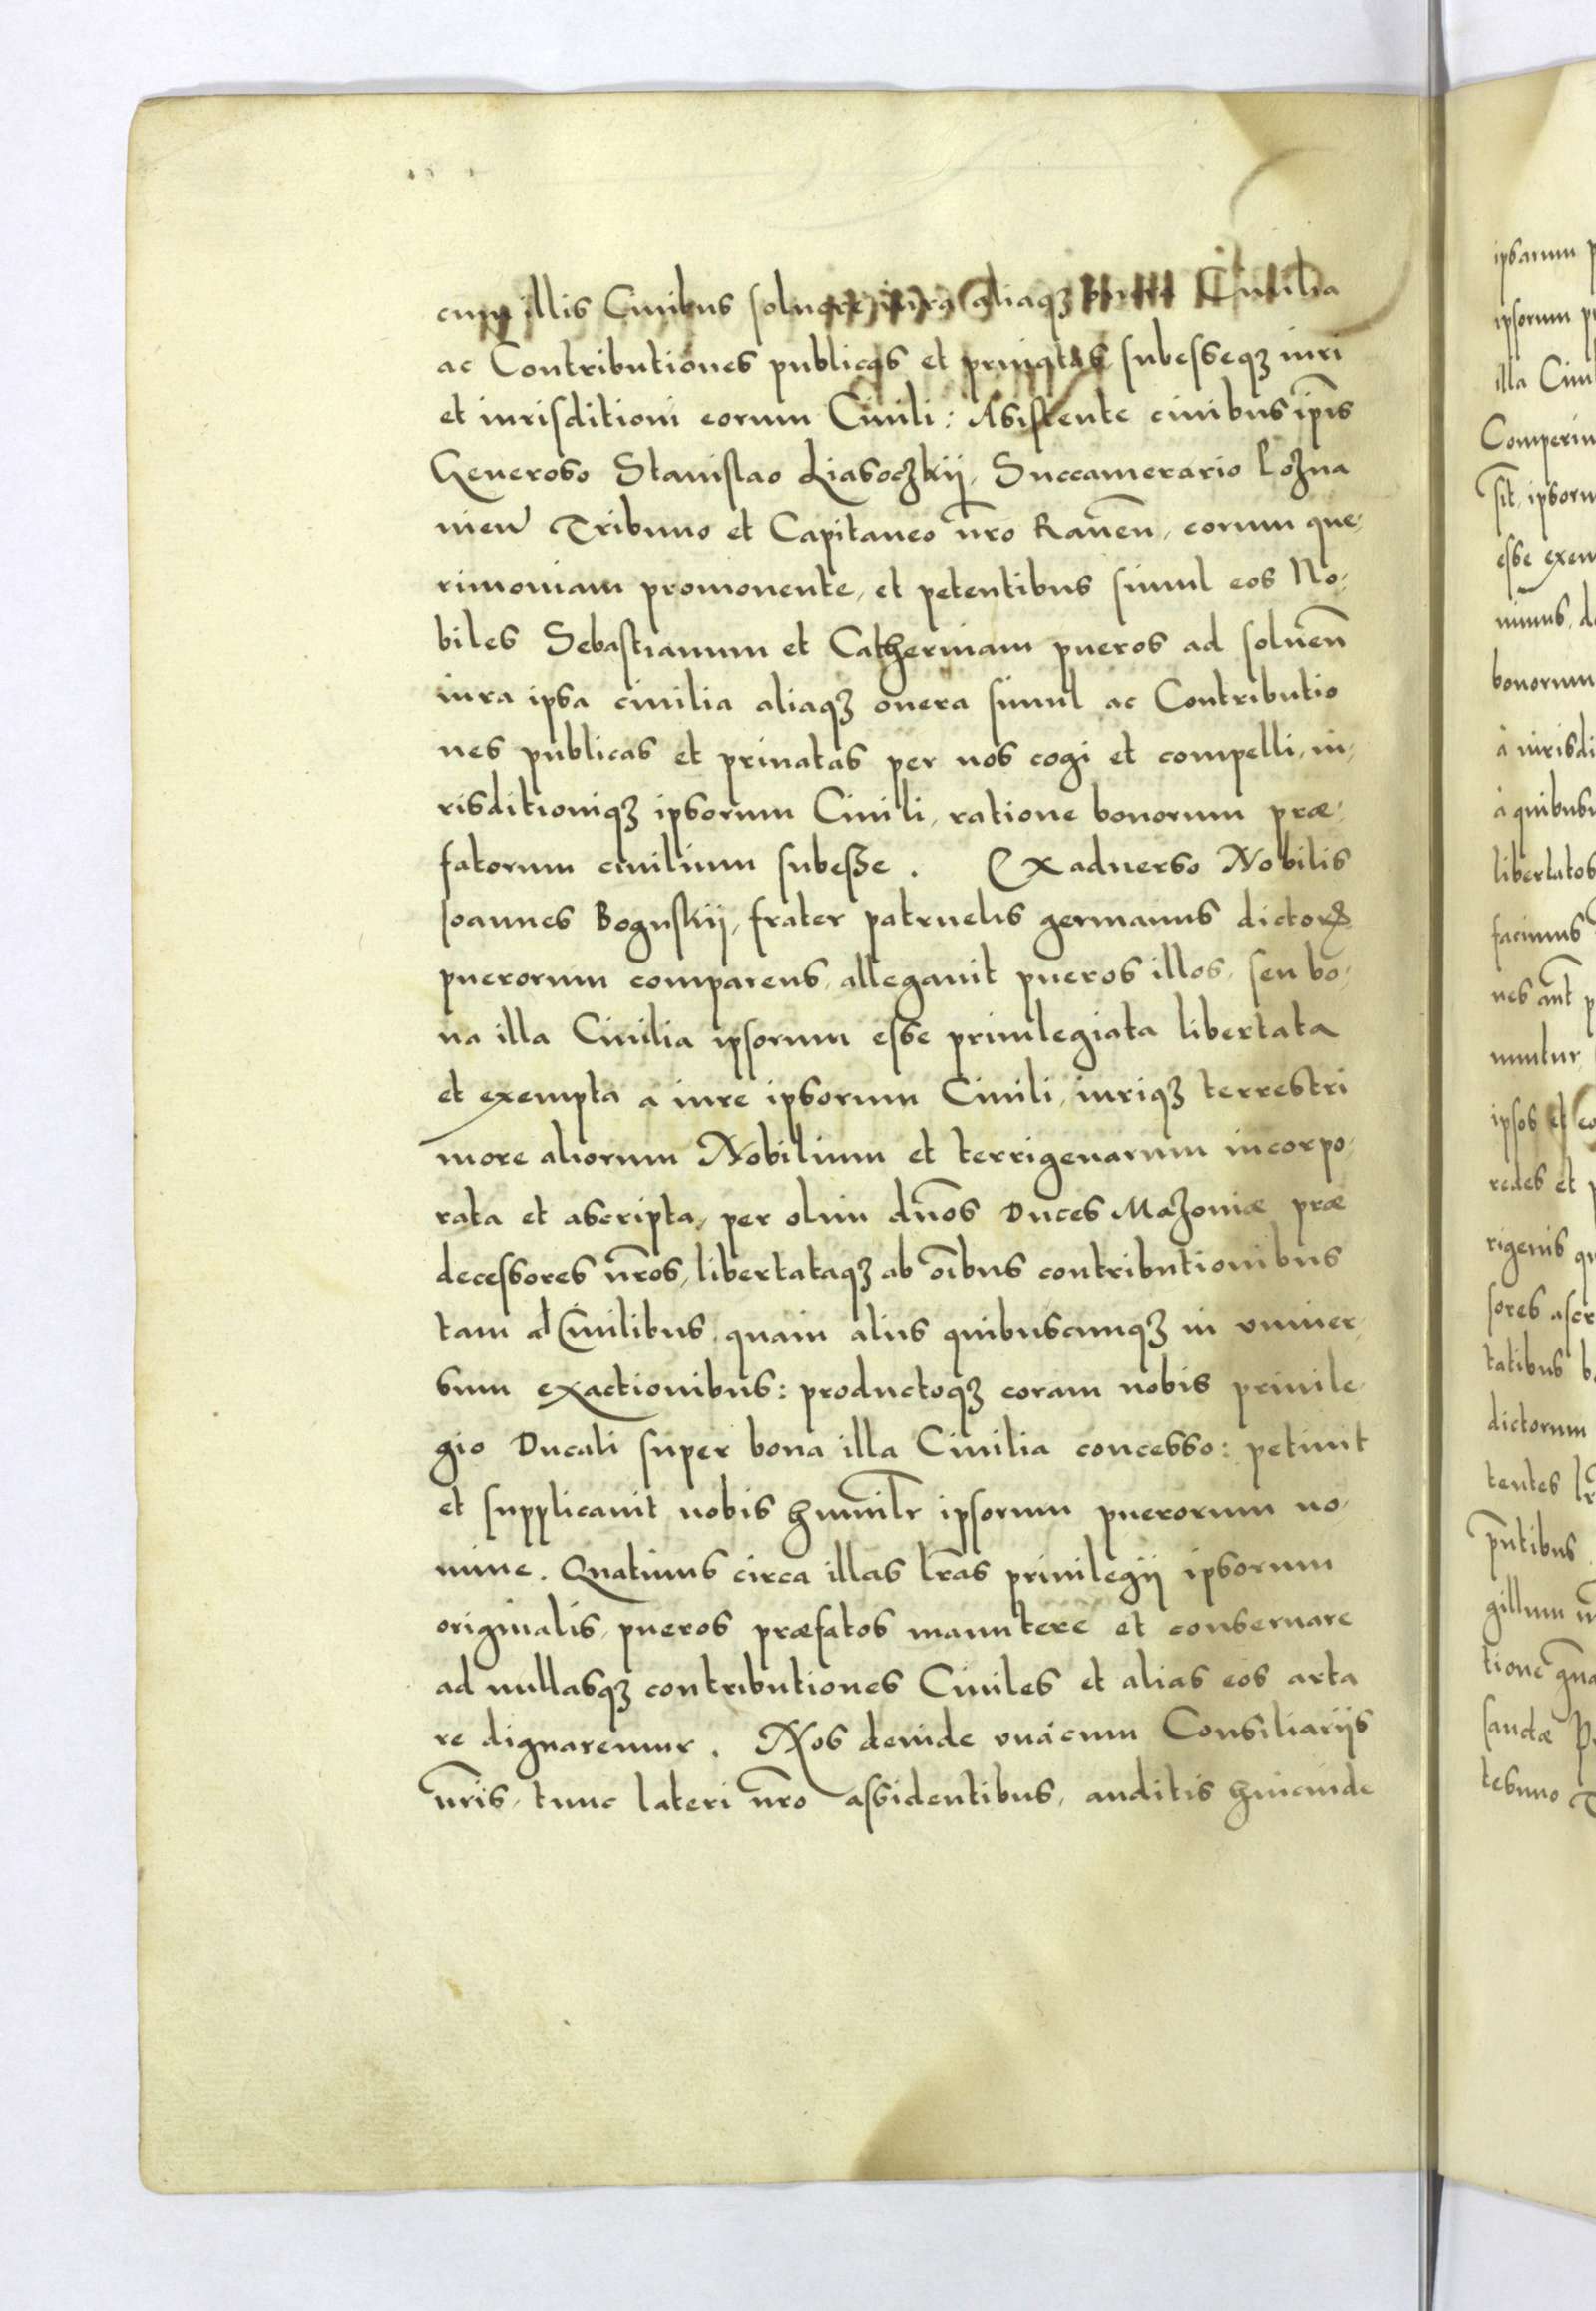 cum illis Ciuibus soluere iura aliaqʒ Ciuilia
ac Contributiones publicas et priuatas subesseqʒ iuri
et iurisditioni eorum Ciuili: Asistente ciuibus ip̃is
Generoso Stanislao Liasoczkij, Succamerario Pozna
nien̄ Tribuno et Capitaneo nr̃o Raueñ, eorum que,
rimoniam promonente, et petentibus simul eos No,
biles Sebastianum et Catherinam pueros ad solueñ
iura ipsa ciuilia aliaqʒ onera simul ac Contributio
nes publicas et priuatas per nos cogi et compelli, iu,
risditioniqʒ ipsorum Ciuili, ratione bonorum præ,
fatorum ciuilium subesse. Ex aduerso Nobilis
Joannes Boguskij, frater patruelis germanus dictoꝝ
puerorum comparens, allegauit pueros illos, seu bo,
na illa Ciuilia ipsorum esse priuilegiata libertata
et exempta a iure ipsorum Ciuili, iuriqʒ terrestri
more aliorum Nobilium et terrigenarum incorpo,
rata et ascripta, per olim dños Duces Mazouiæ præ
decessores nr̃os, libertataqʒ ab oĩbus contributionibus
tam a Ciuilibus, quam aliis quibuscunqʒ in vniuer,
sum exactionibus: productoqʒ coram nobis priuile
gio Ducali super bona illa Ciuilia concesso: petiuit
et supplicauit nobis humilr̃ ipsorum puerorum no,
mine. Quatinus circa illas lr̃as priuilegij ipsorum
originalis, pueros præfatos manutere et conseruare
ad nullasqʒ contributiones Ciuiles et alias eos arta
re dignaremur. Nos deinde vnácum Consiliarijs
nr̃is, tunc lateri nr̃o assidentibus, auditis hincinde